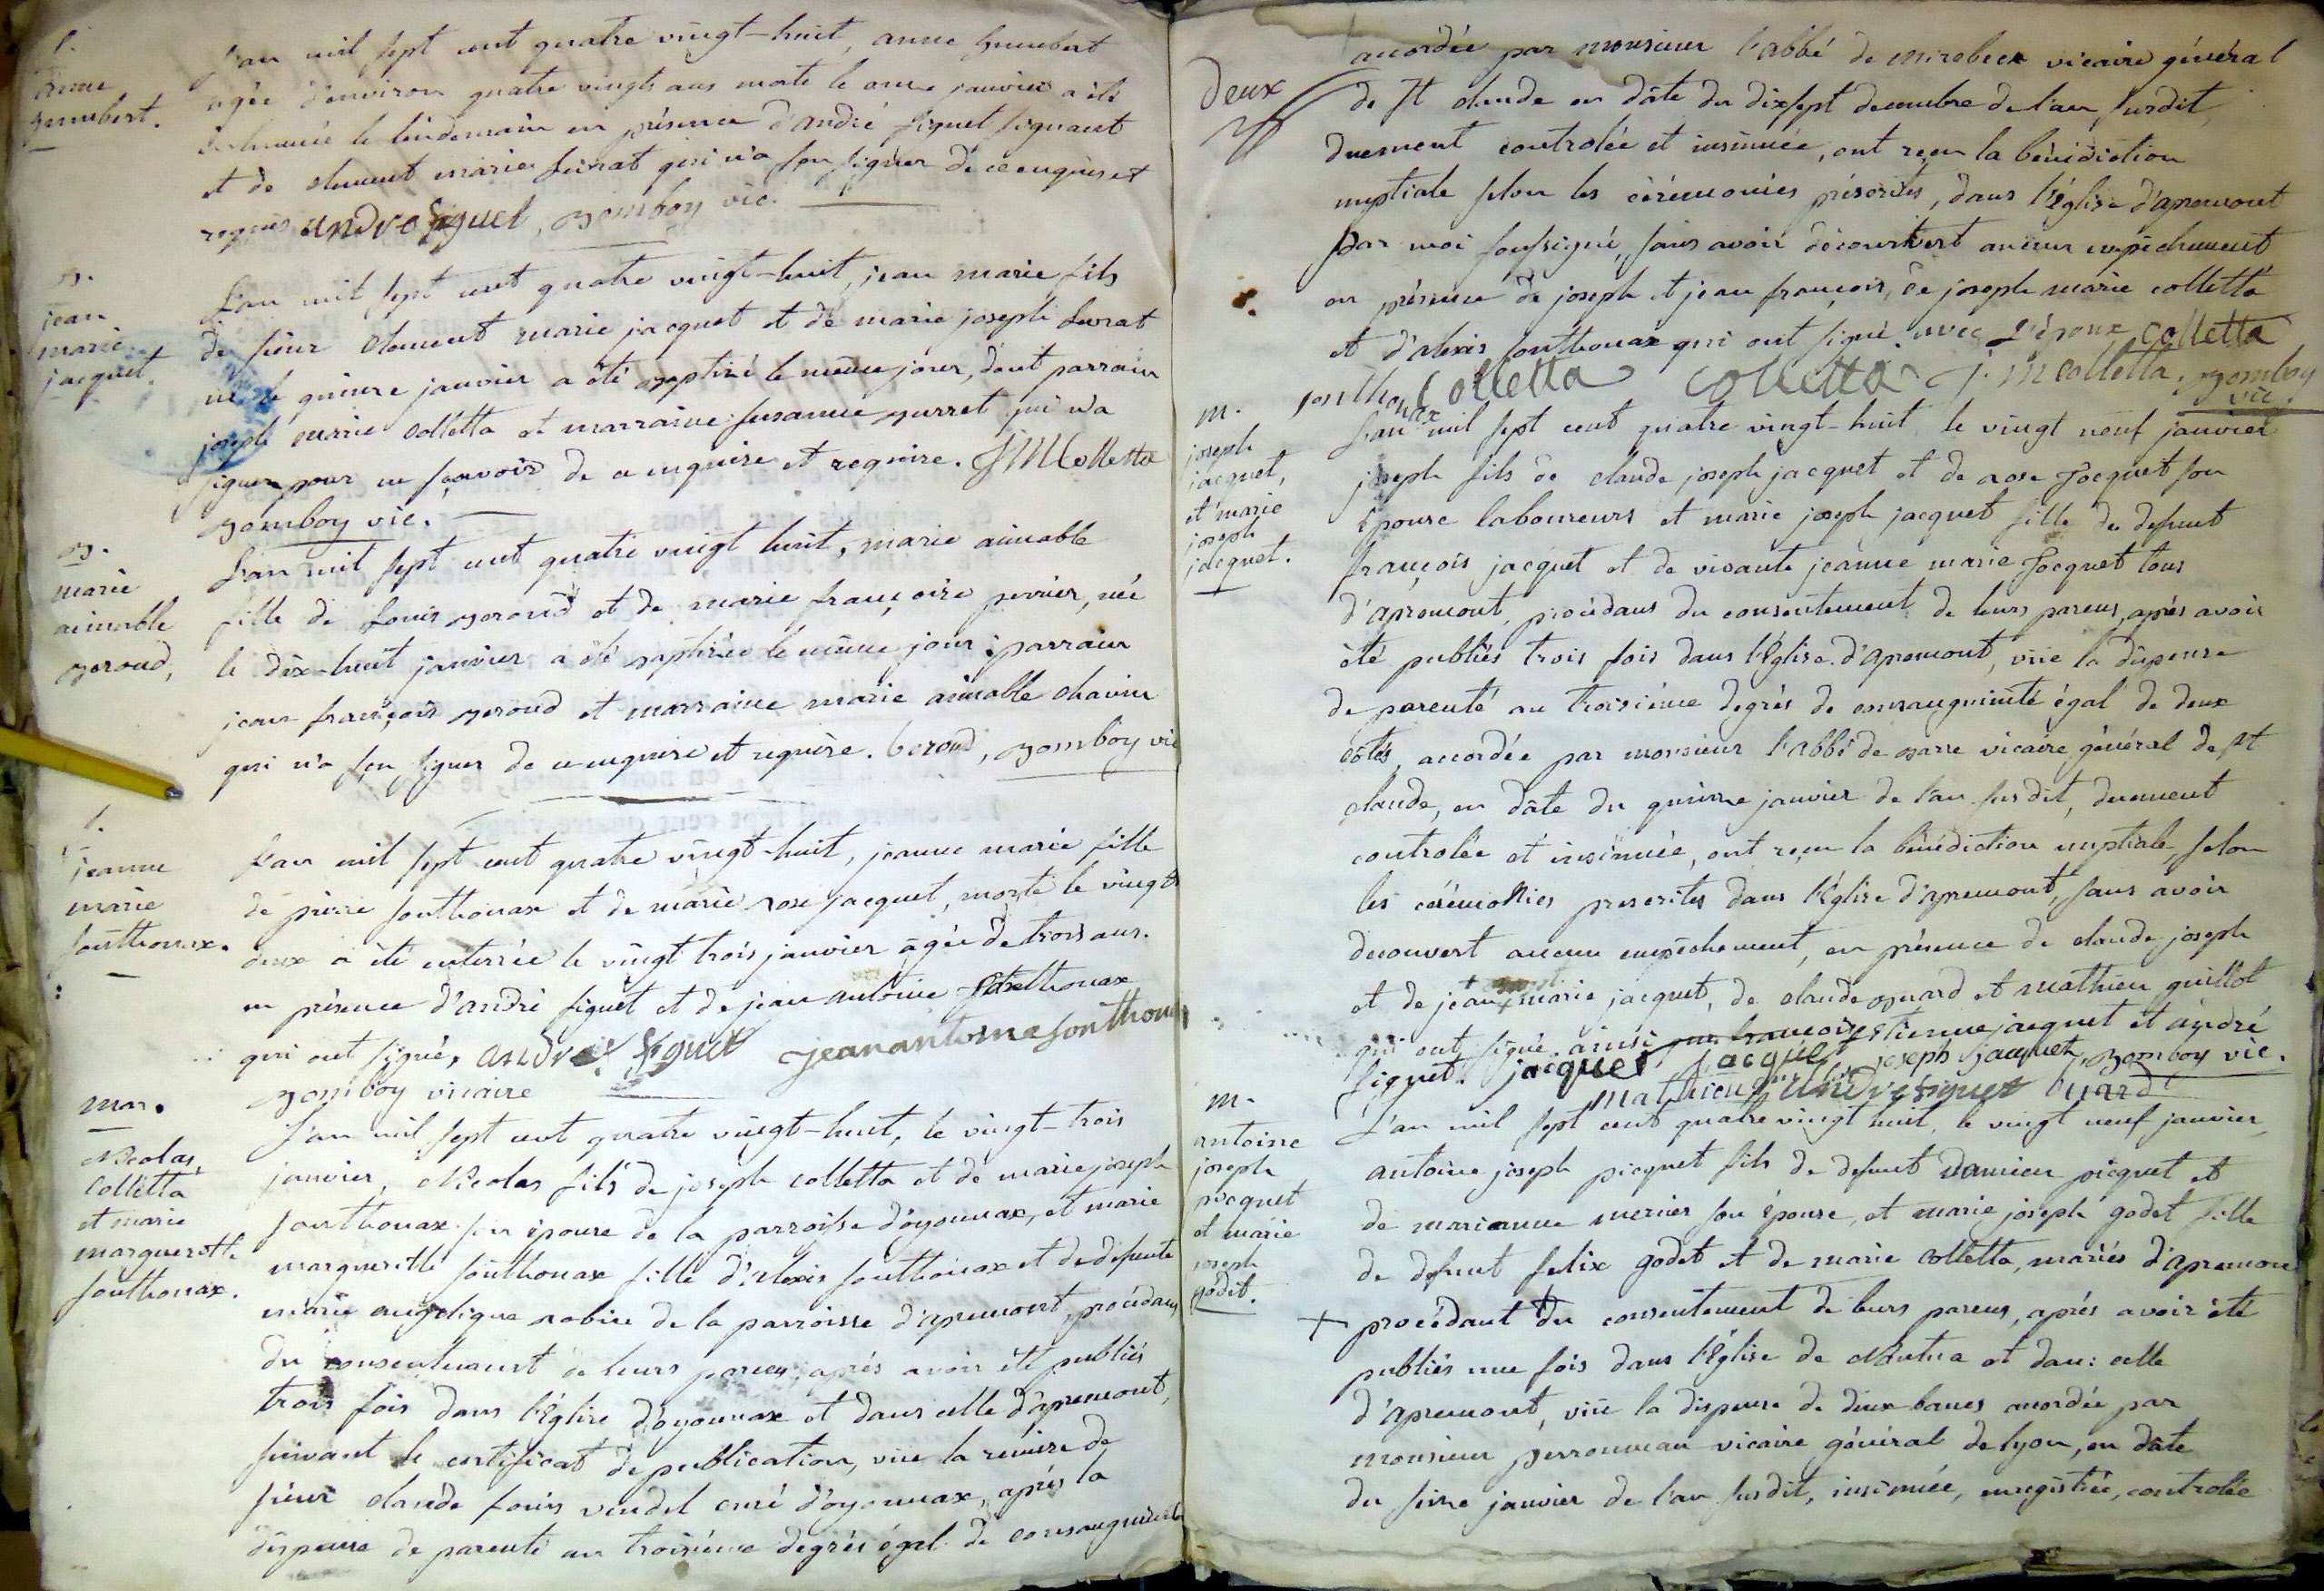 S.
anne
humbert.
L'an mil sept cent quatre vingt-huit, anne humbert
agée d'environ quatre vingts ans morte le onze janvier a été
inhumée le lendemain en présence d'andré figuet signant
et de clement marie seurat qui n'a seu signer de ce enquis et
requis andre figuet, bomboy vic.
B.
jean
marie
jacquet.
L'an mil sept cent quatre vingt-huit, jean marie fils
de sieur clement marie jacquet et de marie joseph seurat
né le quinze janvier a été baptisé le même jour, dont parrain
joseph marie colletta et marraine susanne gurret qui n'a
signer pour ne sçavoir de ce enquise et requise. J M Colletta
bomboy vic.
B.
marie
aimable
beroud,
L'an mil sept cent quatre vingt huit, marie aimable
fille de Louis beroud et de marie françoise perrier, née
le dix-huit janvier a été baptisée le même jour : parrain
jean françois beroud et marraine marie aimable chavin
qui n'a seu signer de ce enquise et requise. beroud, bomboy vic
S.
jeanne
marie
sonthonax.
L'an mil sept cent quatre vingt-huit, jeanne marie fille
de pierre sonthonax et de marie rose jacquet, morte le vingt
deux a été enterrée le vingt trois janvier agée de trois ans.
en présence d'andré figuet et de jean antoine sonthonax
qui ont signé, andre figuet jean antoine sonthonax
bomboy vicaire
mar.
Nicolas
Colletta
et marie
marguerite
sonthonax.
L'an mil sept cent quatre vingt-huit, le vingt-trois
janvier, Nicolas fils de joseph colletta et de marie joseph
sonthonax son épouse de la parroisse d'oyonnax, et marie
marguerite sonthonax fille d'alexis sonthonax et de defunte
marie angelique robin de la parroisse d'apremont, procédans
du consentement de leurs parens, après avoir été publiés
trois fois dans l'église d'oyonnax et dans celle d'apremont,
suivant le certificat de publication, vüe la remise de
sieur claude louis vendel curé d'oyonnax, après la
dispense de parenté au troisième degrés égal de consanguinité
Deux
accordée par monsieur l'abbé de mirobeck vicaire général
de St claude en dâte du dixsept decembre de l'an susdit,
duement controlée et insinuée, ont reçu la bénédiction
nuptiale selon les cérémonies préscrites, dans l'église d'apremont
par moi soussigné, sans avoir découvert aucun empêchement
en présence de joseph et jean françois, de joseph marie colletta
et d'alexis sonthonax qui ont signé avec l'époux colletta
sonthonax Colletta colletta J. M colletta. bomboy
vic.
m.
joseph
jacquet,
et marie
joseph
jacquet.
L'an mil sept cent quatre vingt-huit le vingt neuf janvier
joseph fils de claude joseph jacquet et de rose Jocquet son
épouse laboureurs et marie joseph jacquet fille de defunt
françois jacquet et de vivante jeanne marie Jocquet tous
d'apremont, procédans du consentement de leurs parens, après avoir
été publiés trois fois dans l'église d'apremont, vüe la dispense
de parenté au troisième degrés de consanguinité égal de deux
côtés, accordée par monsieur l'abbé de barre vicaire général de St
claude, en dâte du quinze janvier de l'an susdit, duement
controlée et insinuée, ont reçu la bénédiction nuptiale, selon
les cérémonies prescrites dans l'église d'apremont, sans avoir
decouvert aucun empêchement, en présence de claude joseph
et de jean marie jacquet, de claude buard et mathieu guillot
qui ont signé ainsi que françois etienne jacquet et andré
figuet. jacquet jacquet joseph jacquet, bomboy vic.
mathieu andre figuet buard
m.
antoine
joseph
picquet
et marie
joseph
godet.
L'an mil sept cent quatre vingt huit, le vingt neuf janvier,
antoine joseph picquet fils de defunt Damien picquet et
de marianne mernier son épouse, et marie joseph godet fille
de defunt felix godet et de marie colletta, mariés d'apremont
+ procédant du consentement de leurs parens, après avoir été
publiés une fois dans l'église de Nantua et dans celle
d'apremont, vüe la dispense de deux bancs accordée par
monsieur perronneau vicaire général de lyon, en dâte
du seize janvier de l'an susdit, insinuée, enregistrée, controlée